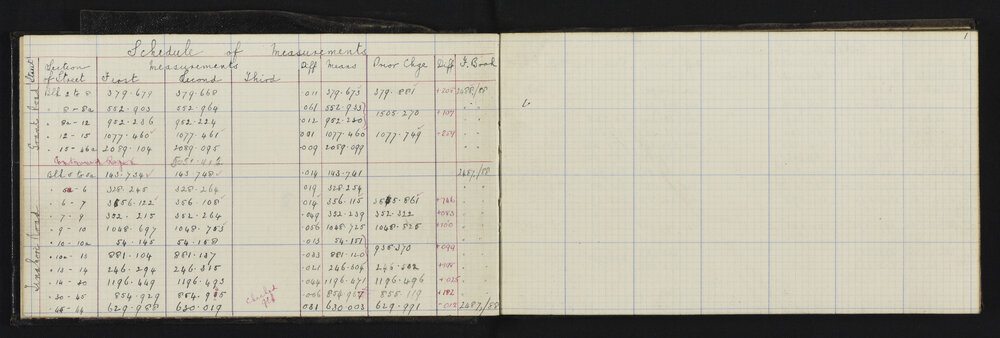 Schedule of Measurements
Street Section of Street Measurements First Second Third Diff Means Prior Chge Diff F. Book
2 to 8 379.679 379.668 .011 379.673 379.881 2488/88
" 8-8a 552.903 552.964 .061 552.933 1505.270 "
" 8a-12 952.236 952.224 .012 952.230 "
" 12-15 1077.460 1077.461 .001 1077.460 1077.749 "
" 15-46a 2089.104 2089.095 .009 2089.099 "
143.734 143.748 .014 143.741 2487/88
" 5a-6 328.245 328.264 .019 328.254 "
" 6-7 3556.122 356.108 .014 356.115 +746 "
" 7-9 352.215 352.264 .049 352.239 352.322 +083 "
" 9-10 1048.697 1048.753 .056 1048.725 1048.825 +100 "
" 10-10a 54.145 54.158 .013 54.151 935.270 +099 "
" 10a-13 881.104 881.137 .033 881.120 "
" 13-14 246.294 246.315 .021 246.304 "
" 14-30 1196.449 1196.493 .044 1196.471 1196.496 +025 "
" 30-45 854.929 854.935 Checked .006 855.119 +182 "
" 45-44 629.988 630.019 .031 630.003 629.991 -012 2487/88
1